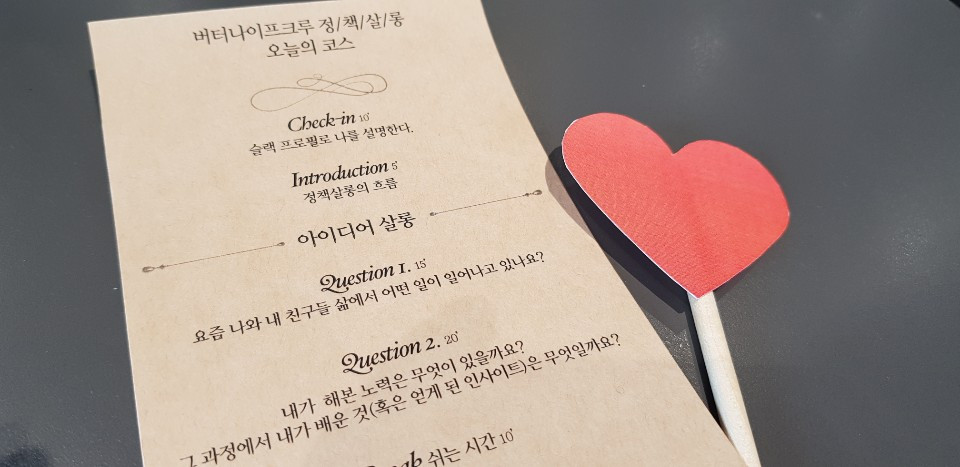 버터나이프크루 정/책/살/롱
오늘의 코스
Check-in 10'
슬랙 프로필로 나를 설명한다.
Introduction 5'
정책살롱의 흐름
아이디어 살롱
Question 1. 15'
요즘 나와 내 친구들 삶에서 어떤 일이 일어나고 있나요?
Question 2. 20'
내가 해본 노력은 무엇이 있을까요?
그 과정에서 내가 배운 것(혹은 얻게 된 인사이트)은 무엇일까요?
쉬는 시간 10'